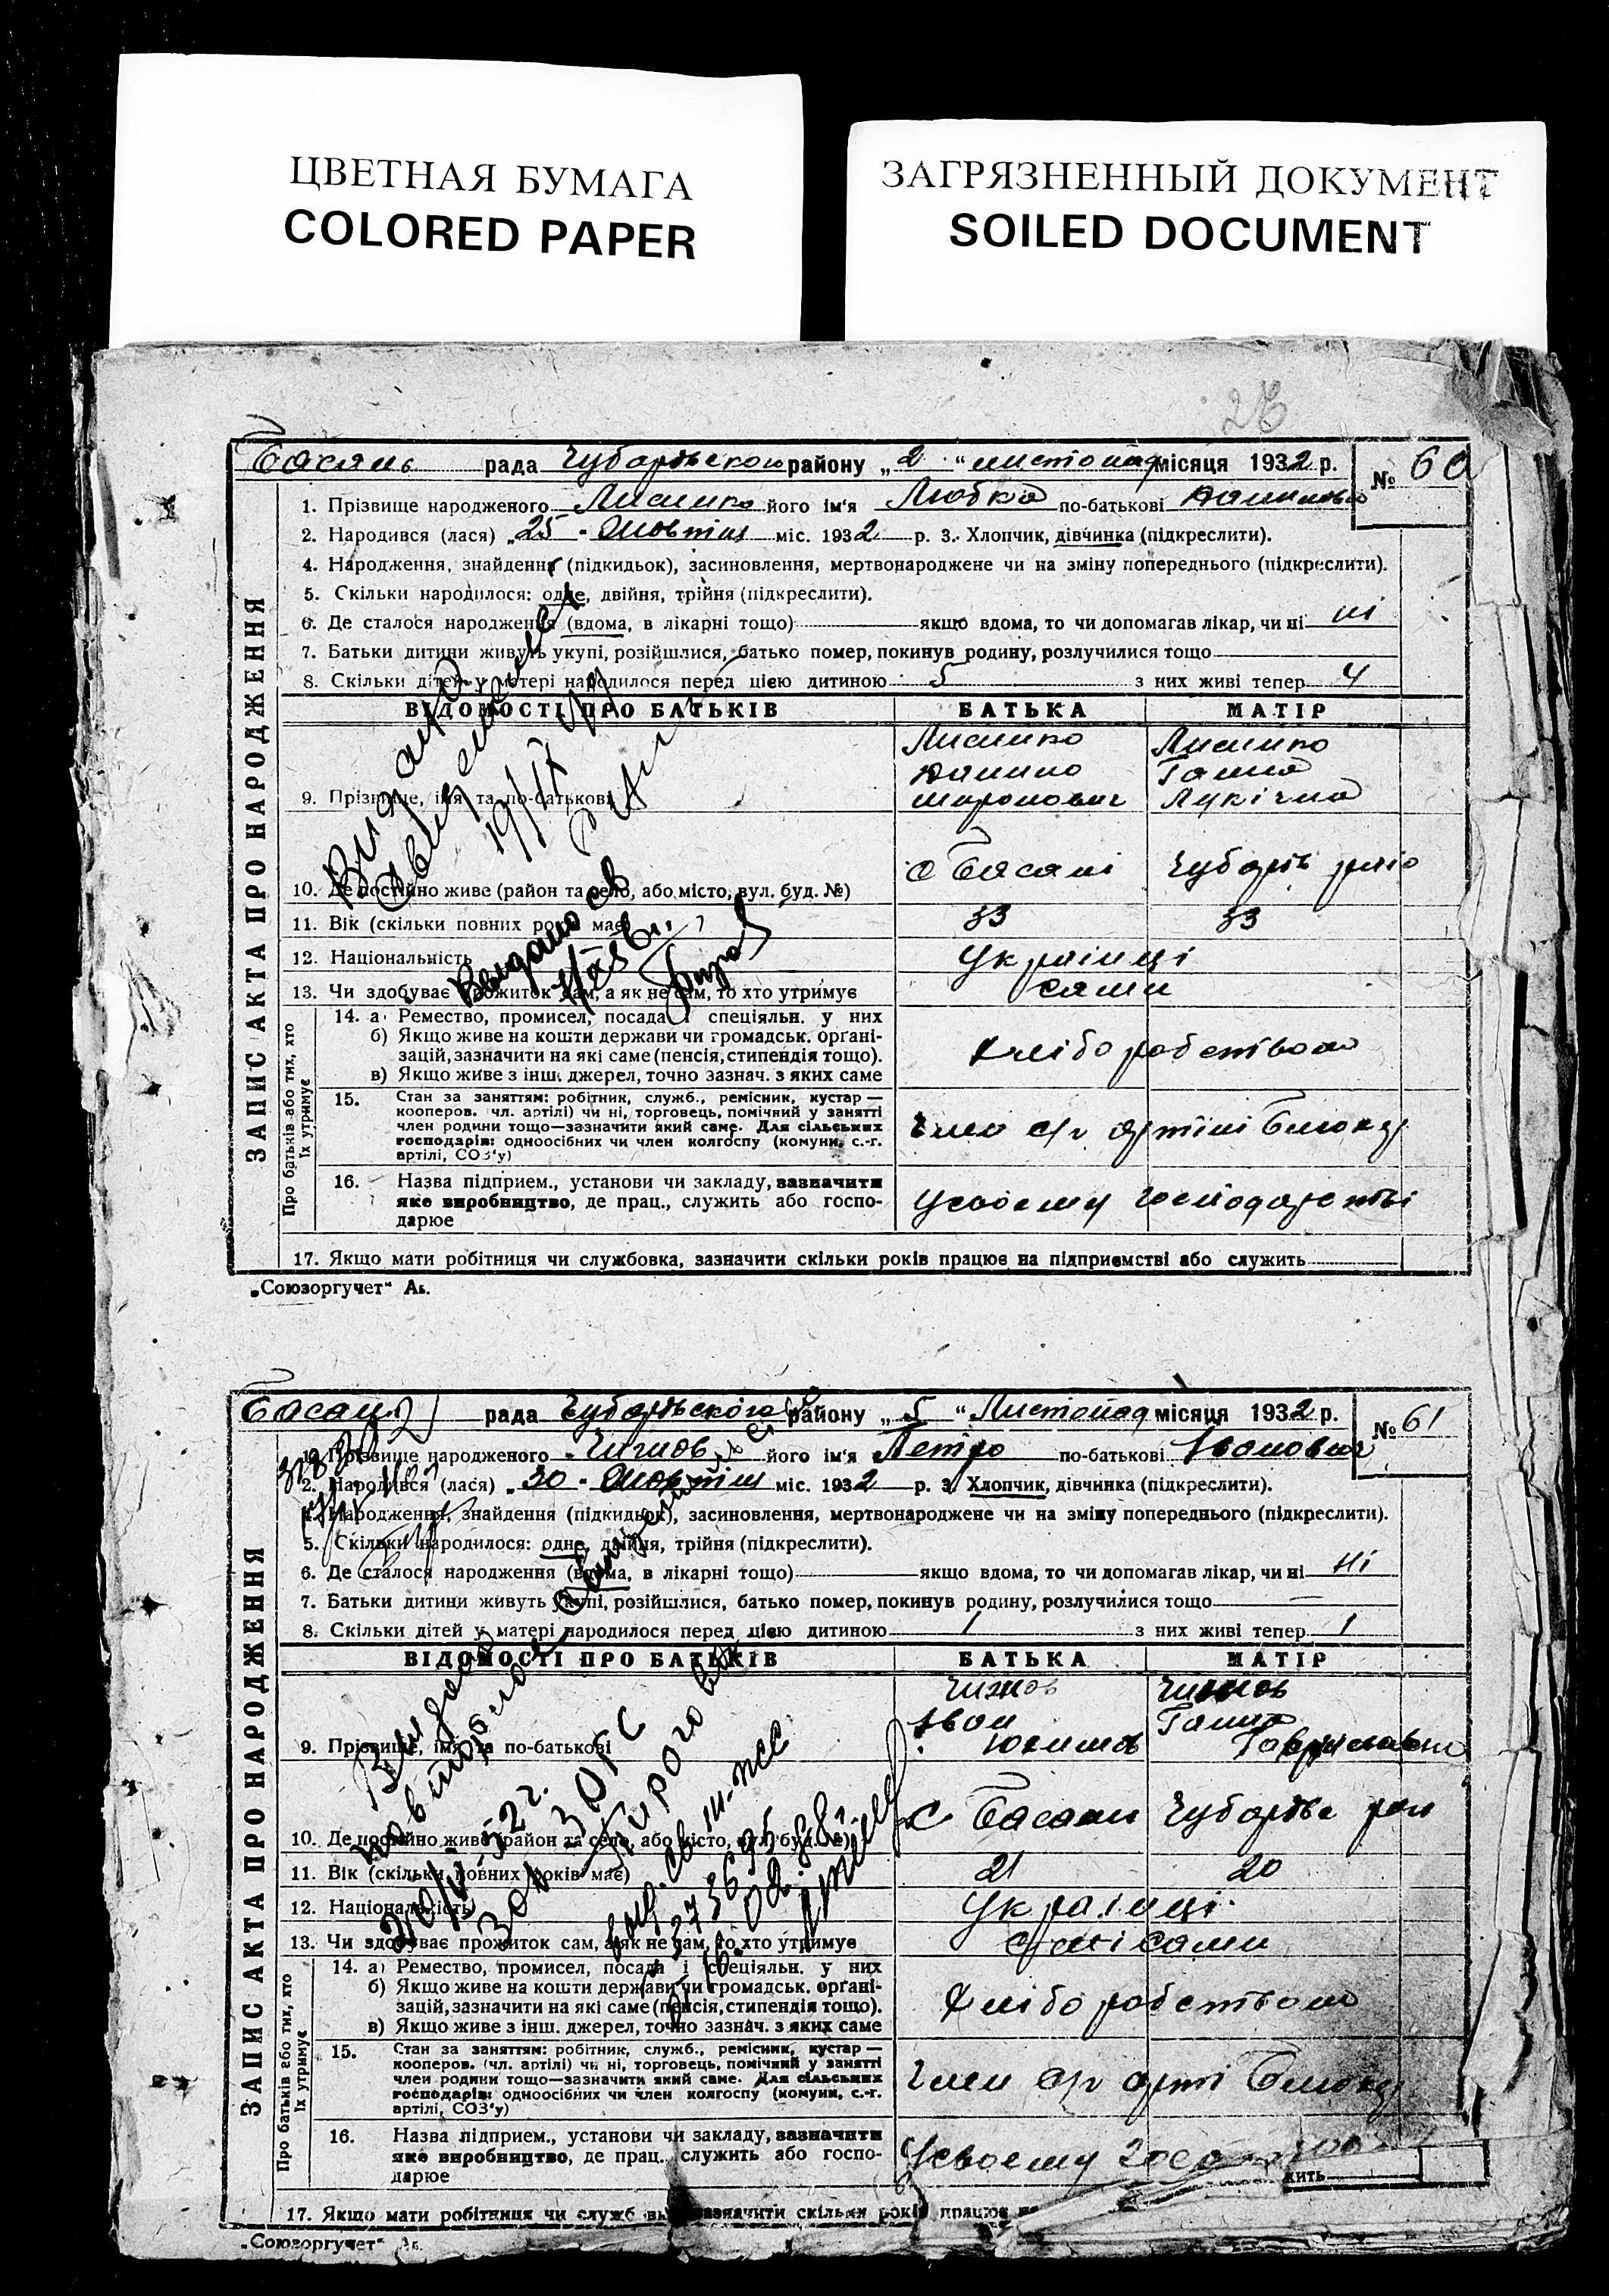 ЦВЕТНАЯ БУМАГА
COLORED PAPER
ЗАГРЯЗНЕННЫЙ ДОКУМЕНТ
SOILED DOCUMENT
Басань рада Чубарівського району „2“ листопад місяця 1932 р. № 60
ЗАПИС АКТА ПРО НАРОДЖЕННЯ
1. Прізвище народженого його ім'я Любка по-батькові
2. Народився (лася) „25 - Жовтня міс. 1932 р. 3. Хлопчик, дівчинка (підкреслити).
4. Народження, знайдення (підкидьок), засиновлення, мертвонароджене чи на зміну попереднього (підкреслити).
5. Скільки народилося: одне, двійня, трійня (підкреслити).
6. Де сталося народження (вдома, в лікарні тощо) якщо вдома, то чи допомагав лікар, чи ні ні
7. Батьки дитини живуть укупі, розійшлися, батько помер, покинув родину, розлучилися тощо
8. Скільки дітей у матері народилося перед цією дитиною 5 з них живі тепер 4
ВІДОМОСТІ ПРО БАТЬКІВ БАТЬКА МАТІР
9. Прізвище, імя та по-батькові
Миронович
Ганна
Лукічна
10. Де постійно живе (район та село, або місто, вул. буд. №) с Басані Чубарів
11. Вік (скільки повних років має) 33 33
12. Національність Українці
13. Чи здобуває прожиток сам, а як не сам, то хто утримує сами
Про батьків або тих, хто їх утримує
14. а) Ремество, промисел, посада і спеціяльн. у них
б) Якщо живе на кошти держави чи громадськ. орґані-
зацій, зазначити на які саме (пенсія, стипендія тощо).
в) Якщо живе з інш. джерел, точно зазнач. з яких саме
Хлібо робством
15. Стан за заняттям: робітник, служб., ремісник, кустар —
кооперов. (чл. артілі) чи ні, торговець, помічний у занятті
член родини тощо—зазначити який саме. Для сільських
господарів: одноосібних чи член колгоспу (комуни, с.-г.
артілі, СОЗ'у)
Член с/г артілі
16. Назва підприєм., установи чи закладу, зазначити
яке виробництво, де прац., служить або госпо-
дарює
Усвоєму господарстві
17. Якщо мати робітниця чи службовка, зазначити скільки років працює на підприємстві або служить
„Союзоргучет“
Видано
19/IX
Видано св
Басань рада Чубарівського району „5“ Листопад місяця 1932 р. № 61
ЗАПИС АКТА ПРО НАРОДЖЕННЯ
1. Прізвище народженого Чижов його ім'я Петро по-батькові Іванович
2. Народився (лася) „30 - Жовтня міс. 1932 р. 3. Хлопчик, дівчинка (підкреслити).
4. Народження, знайдення (підкидьок), засиновлення, мертвонароджене чи на зміну попереднього (підкреслити).
5. Скільки народилося: одне, двійня, трійня (підкреслити).
6. Де сталося народження (вдома, в лікарні тощо) якщо вдома, то чи допомагав лікар, чи ні ні
7. Батьки дитини живуть укупі, розійшлися, батько помер, покинув родину, розлучилися тощо
8. Скільки дітей у матері народилося перед цією дитиною 1 з них живі тепер 1
ВІДОМОСТІ ПРО БАТЬКІВ БАТЬКА МАТІР
9. Прізвище, імя та по-батькові
Чижов Чижов
Іван Ганна
10. Де постійно живе (район та село, або місто, вул. буд. №) с Басань Чубарівс рай
11. Вік (скільки повних років має) 21 20
12. Національність Українці
13. Чи здобуває прожиток сам, а як не сам, то хто утримує сами
Про батьків або тих, хто їх утримує
14. а) Ремество, промисел, посада і спеціяльн. у них
б) Якщо живе на кошти держави чи громадськ. орґані-
зацій, зазначити на які саме (пенсія, стипендія тощо).
в) Якщо живе з інш. джерел, точно зазнач. з яких саме
Хлібо робством
15. Стан за заняттям: робітник, служб., ремісник, кустар —
кооперов. (чл. артілі) чи ні, торговець, помічний у занятті
член родини тощо—зазначити який саме. Для сільських
господарів: одноосібних чи член колгоспу (комуни, с.-г.
артілі, СОЗ'у)
Член с/г арті
16. Назва підприєм., установи чи закладу, зазначити
яке виробництво, де прац., служить або госпо-
дарює
Усвоєму
17. Якщо мати робітниця чи служб зазначити скільки років працює
жить
„Союзоргучет“
Видано
повторное
20/V-52 г.
Зав ЗАГС